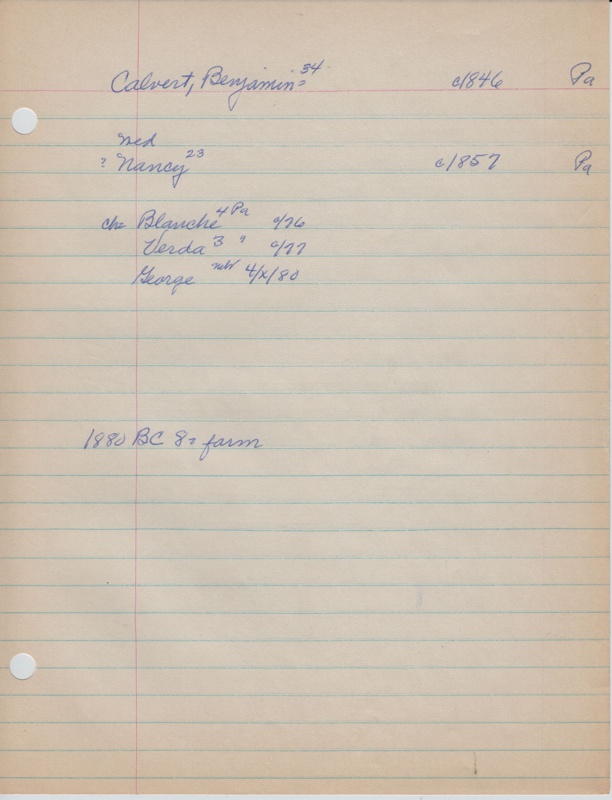 Calvert, Benjamin = 34 c/1846 Pa
med
? Nancy 23 c/1857 Pa
ch= Blanche 4 Pa c/76
Verda 3 " c/77
George 4/x/80
1880 BC 8= farm